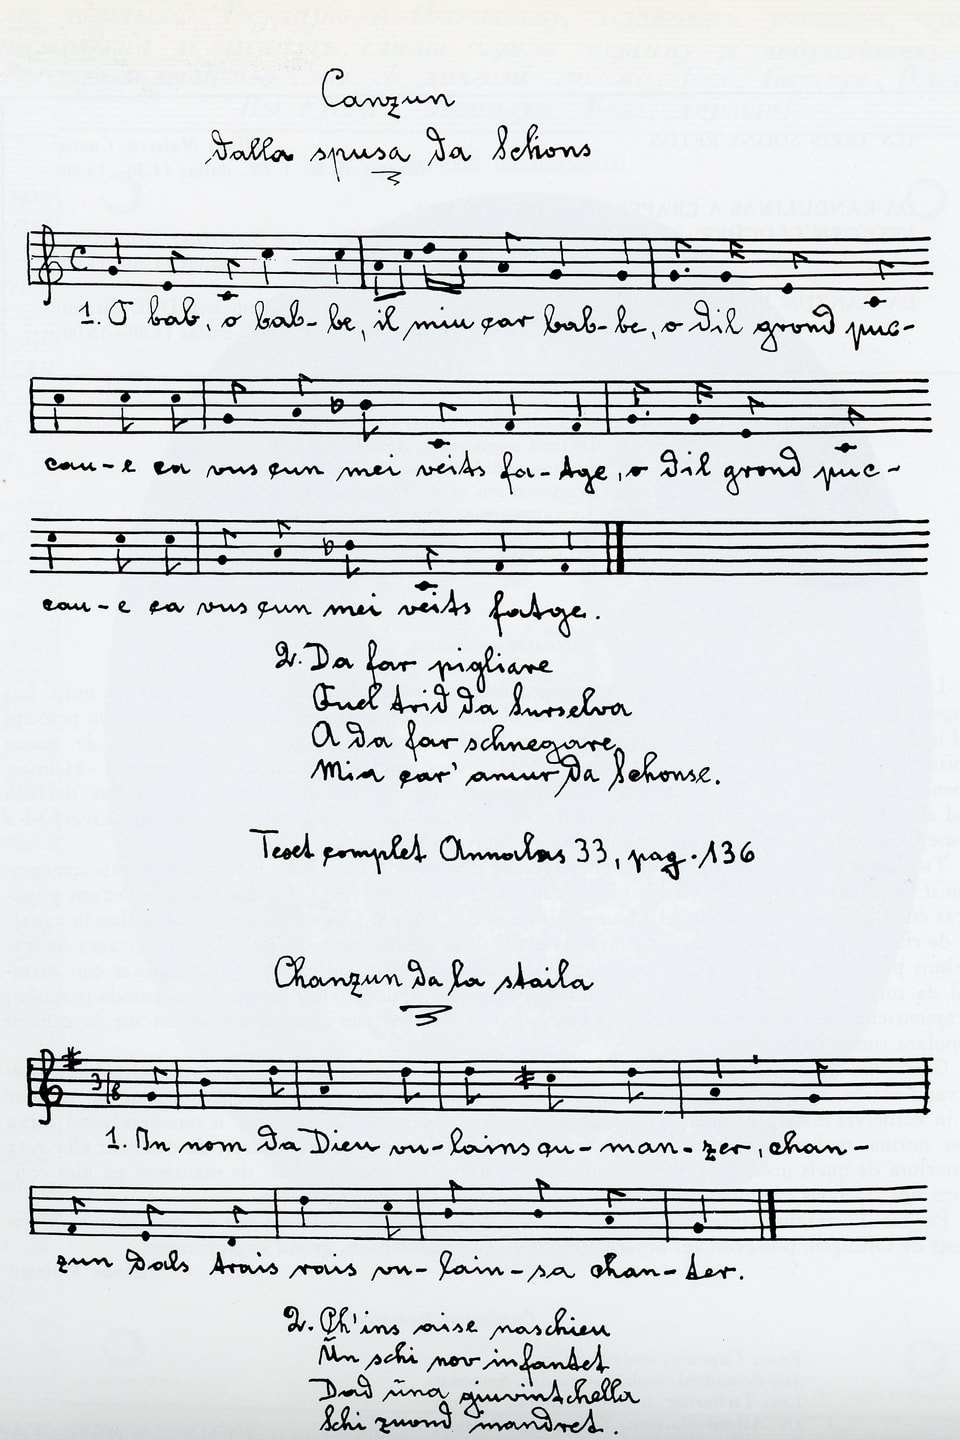 Canzun
dalla spusa da Schons
1. O bab, o bab-be, il miu car bab-be, o dil grond puc-
cau-e ca vus çun mei veits fa-tge, o dil grond puc-
cau-e ca vus çun mei veits fatge.
2. Da far pigliare
Quel trid da Surselva
A da far schnegare
Mia çar' amur da Schonse.
Text complet Annalas 33, pag. 136
Chanzun da la staila
3/8
1. In nom da Dieu vu-lains cu-man-zer, chan-
zun dals trais rais vu-lain-sa chan-ter.
2. Ch'ins aise naschieu
Ün schi nov infantet
Dad üna giuvintschella
Schi zuond mandret.